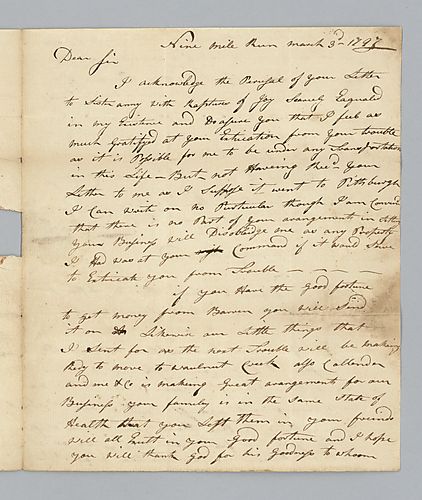 Nine Mile Run March 3d 1797
Dear Sir
I acknowledge the Perusal of your Letter
to Sister amy with Raptures of Joy Scarcely Equaled
in my Existence and Do assure you that I feel as
much Gratifyd at your Extrication from your trouble
as it is Possible for me to be under any
in this Life - But - not Haveing Recd your
Letter to me as I Suppose it went to Pittsburgh
I Can wait on no Particular though I am
that there is no Part of your arangement in
your Business will Disoblidge me as any Property
I Had was at your Command if it would Serve
to Extricate you from Trouble
if you Have the Good fortune
to get money from you will Send
it on Likewise our Little things that
I Sent for as the next Trouble will be making
Redy to move to Wallnut Creek also Callender
and me & Co is making Great arangements for our
Business your family is in the Same State of
Health that you Left them in your friends
will all in your Good fortune and I hope
you will thank God for his Goodness to whom